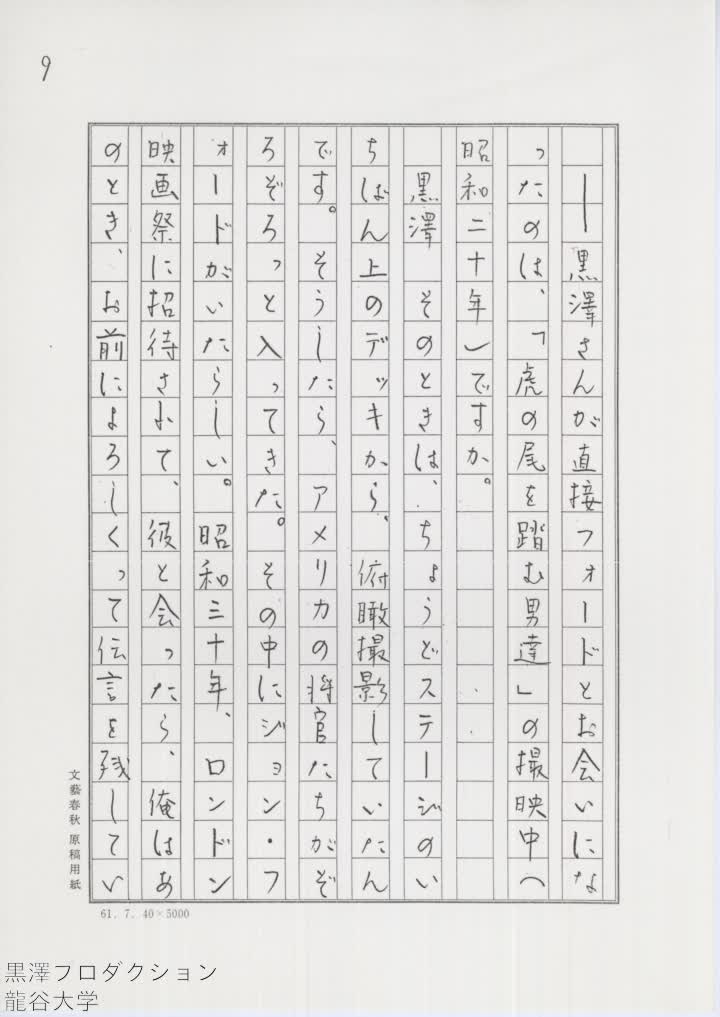 9
――黒澤さんが直接フォードとお会いにな
ったのは、「虎の尾を踏む男達」の撮映中（
昭和二十年）ですか。
黒澤　そのときは、ちょうどステージのい
ちばん上のデッキから、俯瞰撮影していたん
です。そうしたら、アメリカの将官たちがぞ
ろぞろっと入ってきた。その中にジョン・フ
ォードがいたらしい。昭和三十年、ロンドン
映画祭に招待されて、彼と会ったら、俺はあ
のとき、お前によろしくって伝言を残してい
文藝春秋 原稿用紙
61. 7. 40×5000
黒澤プロダクション
龍谷大学